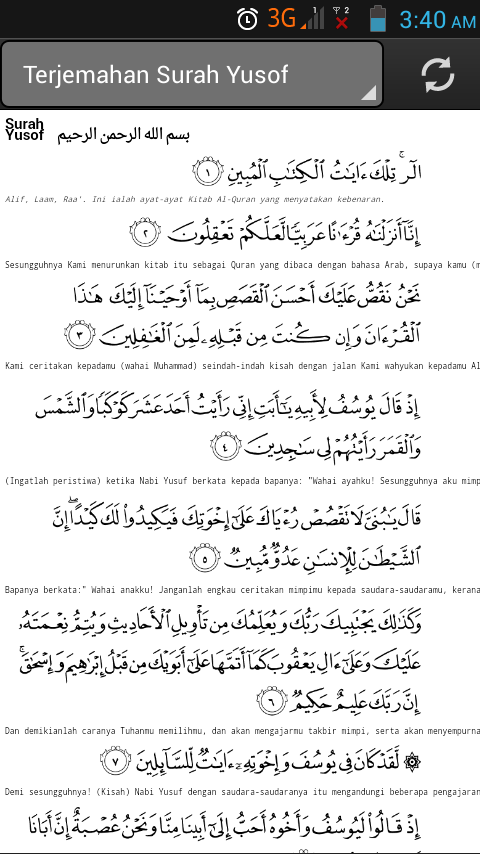 1
2
3G
3:40 AM
Terjemahan Surah Yusof
Surah Yusof
بسم الله الرحمن الرحيم
الٓرۚ تِلۡكَ ءَايَٰتُ ٱلۡكِتَٰبِ ٱلۡمُبِينِ ١
Alif, Laam, Raa'. Ini ialah ayat-ayat Kitab Al-Quran yang menyatakan kebenaran.
إِنَّآ أَنزَلۡنَٰهُ قُرۡءَٰنًا عَرَبِيّٗا لَّعَلَّكُمۡ تَعۡقِلُونَ ٢
Sesungguhnya Kami menurunkan kitab itu sebagai Quran yang dibaca dengan bahasa Arab, supaya kamu (m
نَحۡنُ نَقُصُّ عَلَيۡكَ أَحۡسَنَ ٱلۡقَصَصِ بِمَآ أَوۡحَيۡنَآ إِلَيۡكَ هَٰذَا
ٱلۡقُرۡءَانَ وَإِن كُنتَ مِن قَبۡلِهِۦ لَمِنَ ٱلۡغَٰفِلِينَ ٣
Kami ceritakan kepadamu (wahai Muhammad) seindah-indah kisah dengan jalan Kami wahyukan kepadamu Al
إِذۡ قَالَ يُوسُفُ لِأَبِيهِ يَٰٓأَبَتِ إِنِّي رَأَيۡتُ أَحَدَ عَشَرَ كَوۡكَبٗا وَٱلشَّمۡسَ
وَٱلۡقَمَرَ رَأَيۡتُهُمۡ لِي سَٰجِدِينَ ٤
(Ingatlah peristiwa) ketika Nabi Yusuf berkata kepada bapanya: "Wahai ayahku! Sesungguhnya aku mimp
قَالَ يَٰبُنَيَّ لَا تَقۡصُصۡ رُءۡيَاكَ عَلَىٰٓ إِخۡوَتِكَ فَيَكِيدُواْ لَكَ كَيۡدًاۖ إِنَّ
ٱلشَّيۡطَٰنَ لِلۡإِنسَٰنِ عَدُوّٞ مُّبِينٞ ٥
Bapanya berkata:" Wahai anakku! Janganlah engkau ceritakan mimpimu kepada saudara-saudaramu, kerana
وَكَذَٰلِكَ يَجۡتَبِيكَ رَبُّكَ وَيُعَلِّمُكَ مِن تَأۡوِيلِ ٱلۡأَحَادِيثِ وَيُتِمُّ نِعۡمَتَهُۥ
عَلَيۡكَ وَعَلَىٰٓ ءَالِ يَعۡقُوبَ كَمَآ أَتَمَّهَا عَلَىٰٓ أَبَوَيۡكَ مِن قَبۡلُ إِبۡرَٰهِيمَ وَإِسۡحَٰقَۚ
إِنَّ رَبَّكَ عَلِيمٌ حَكِيمٞ ٦
Dan demikianlah caranya Tuhanmu memilihmu, dan akan mengajarmu takbir mimpi, serta akan menyempurna
۞ لَّقَدۡ كَانَ فِي يُوسُفَ وَإِخۡوَتِهِۦٓ ءَايَٰتٞ لِّلسَّآئِلِينَ ٧
Demi sesungguhnya! (Kisah) Nabi Yusuf dengan saudara-saudaranya itu mengandungi beberapa pengajaran
إِذۡ قَالُواْ لَيُوسُفُ وَأَخُوهُ أَحَبُّ إِلَىٰٓ أَبِينَا مِنَّا وَنَحۡنُ عُصۡبَةٌ إِنَّ أَبَانَا